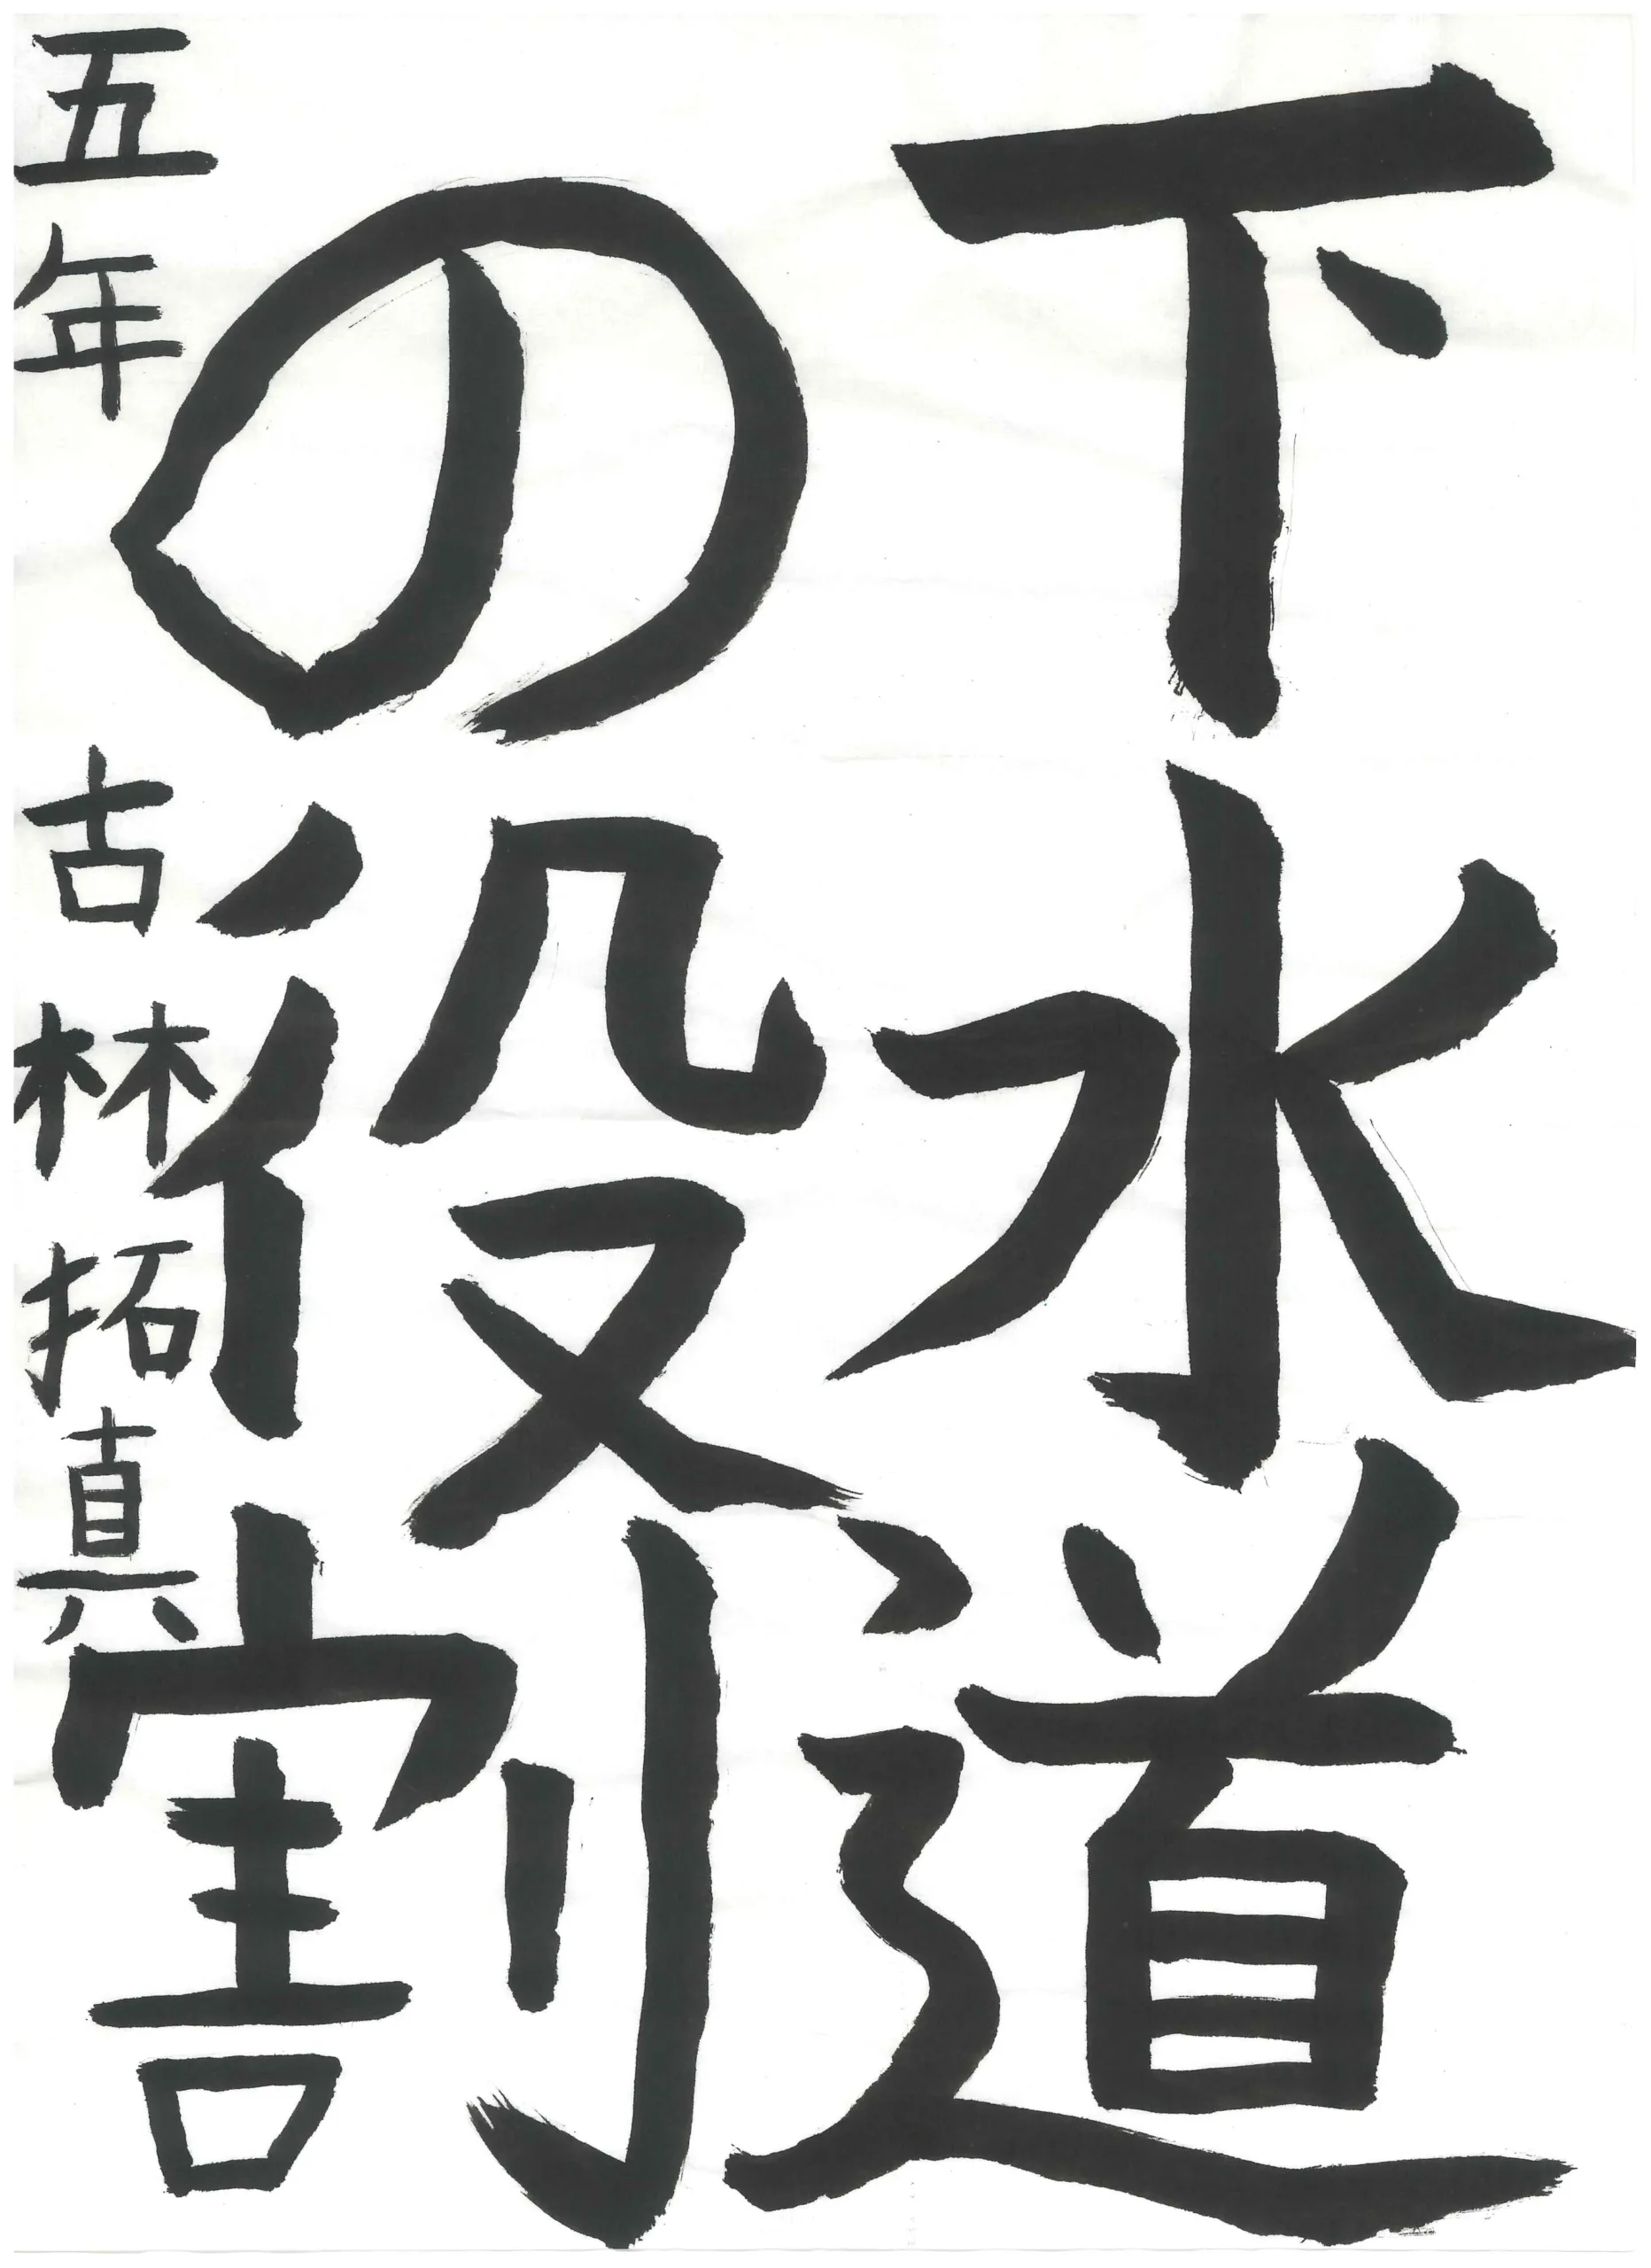 下水道
の役割
五年 古林拓真